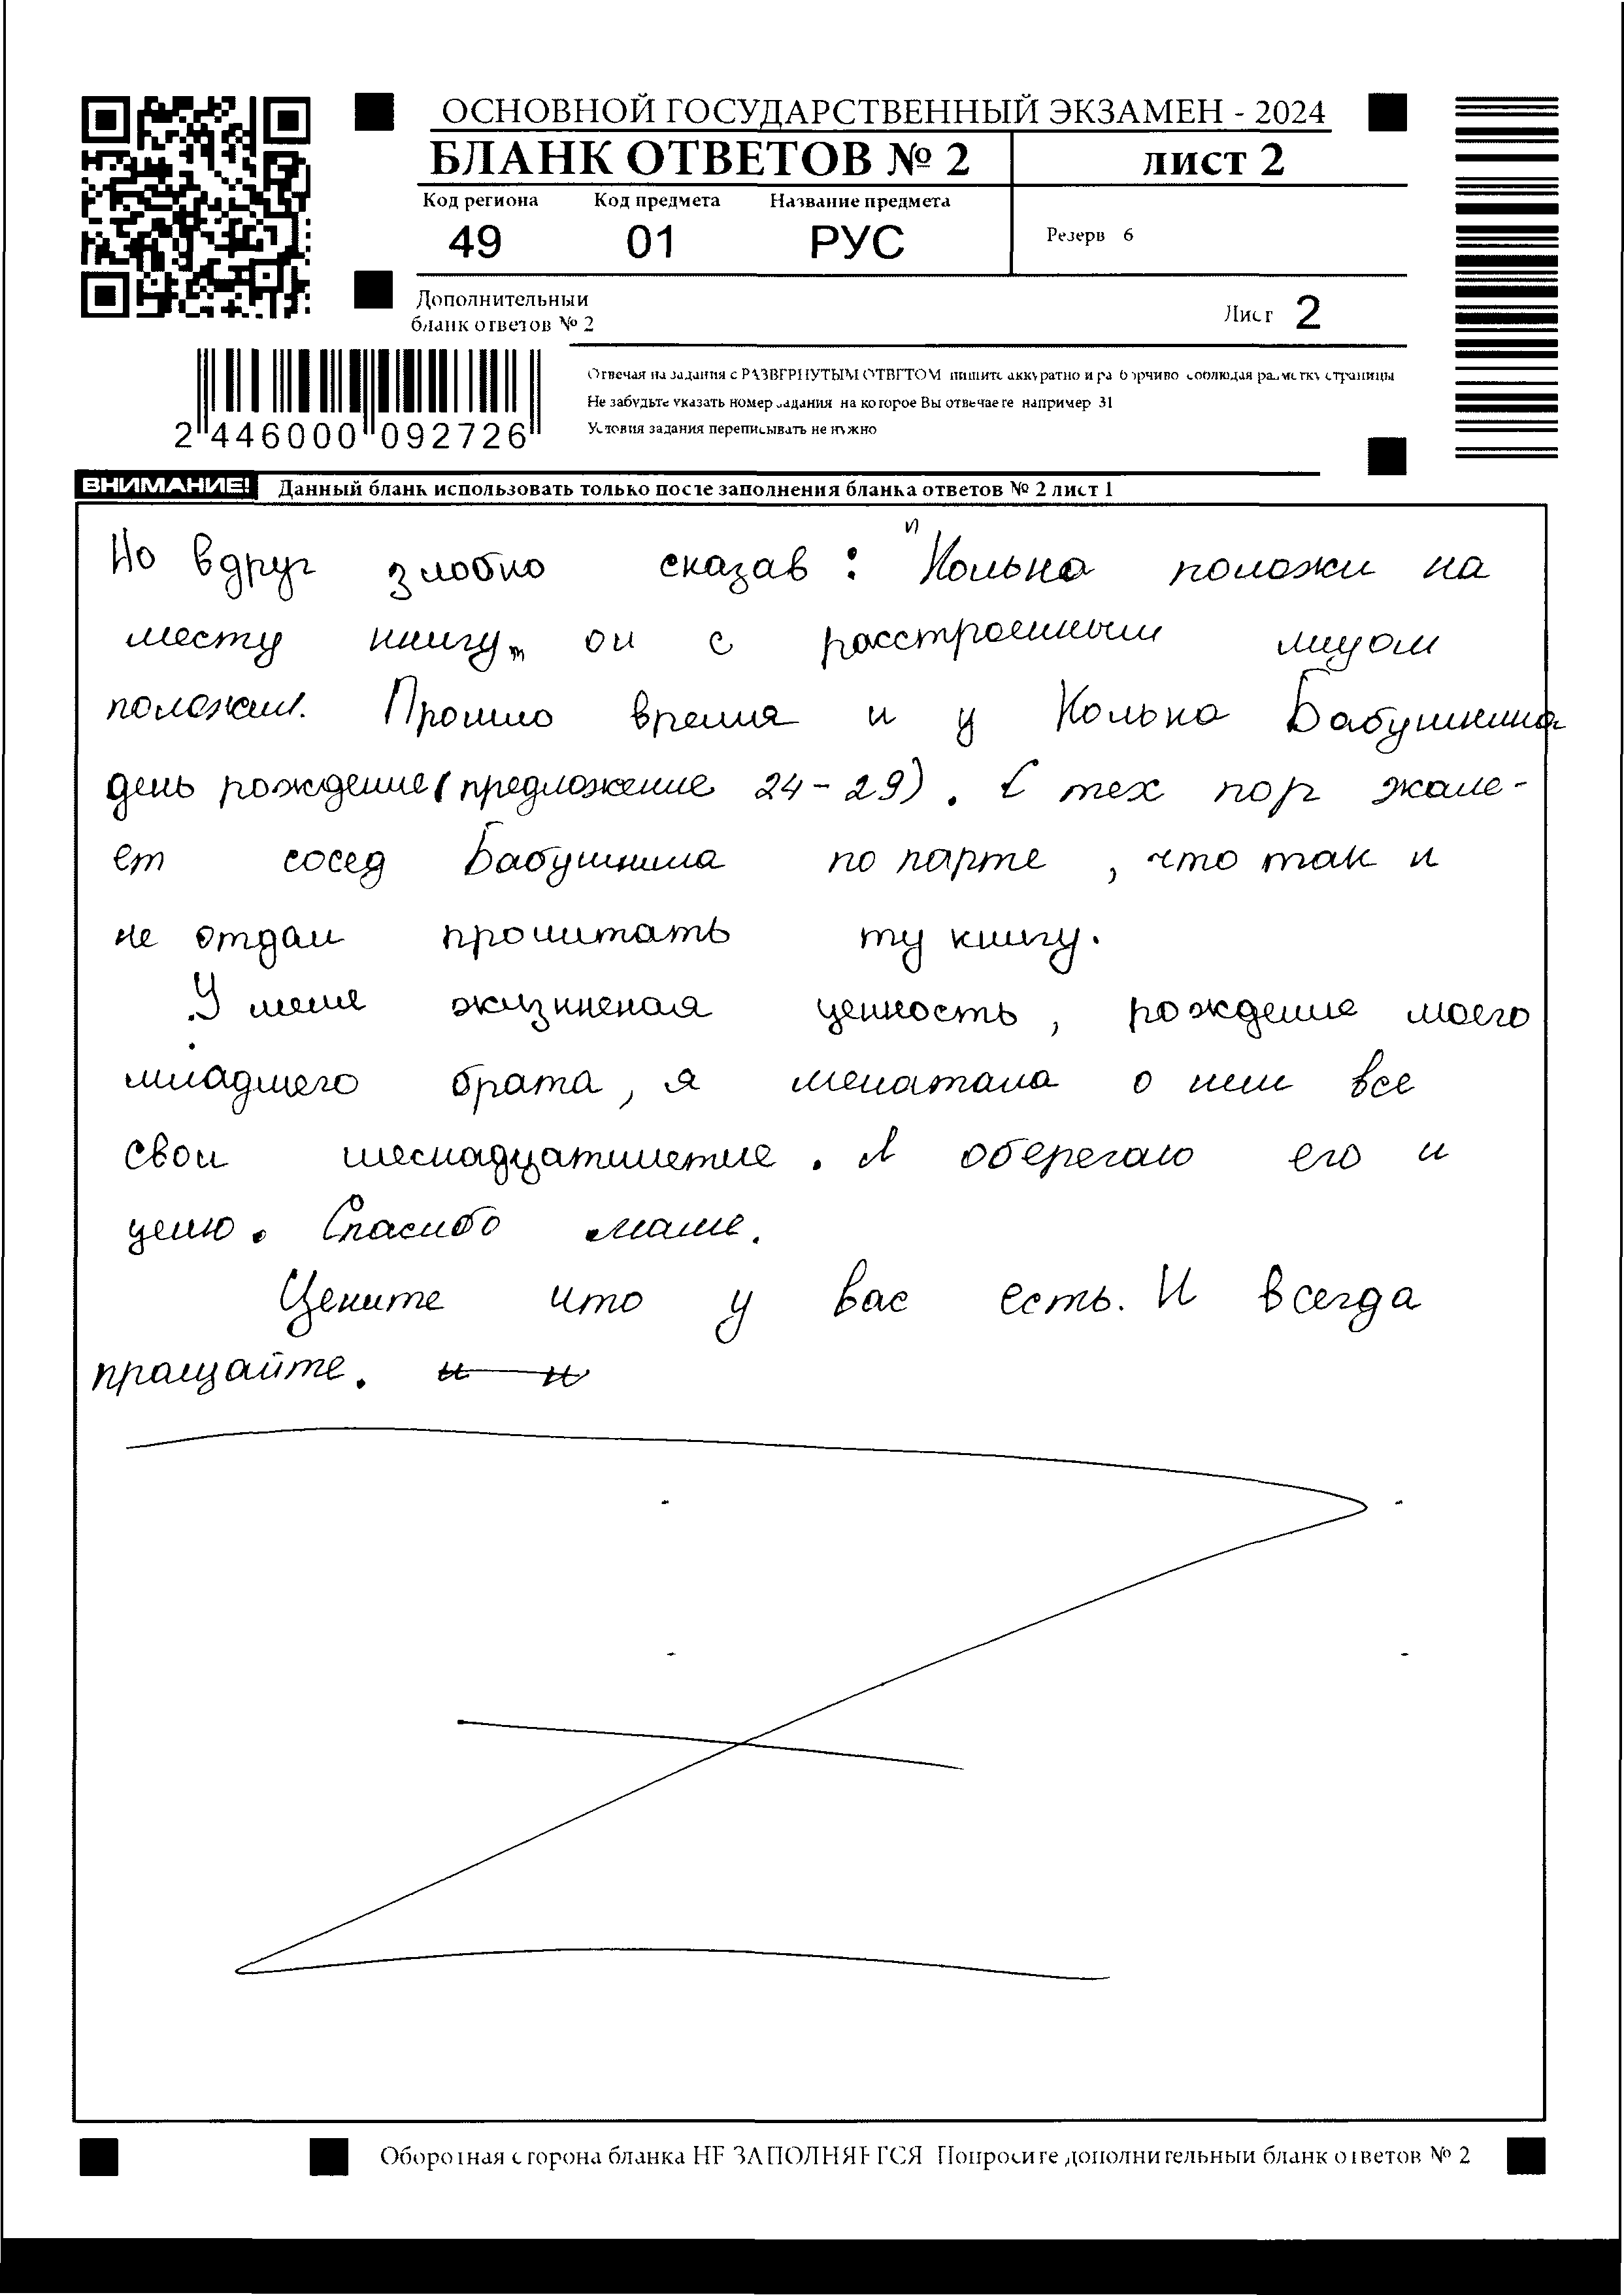 ОСНОВНОЙ ГОСУДАРСТВЕННЫЙ ЭКЗАМЕН - 2024
БЛАНК ОТВЕТОВ № 2 лист 2
Код региона Код предмета Название предмета
49 01 РУС
Резерв 6
Дополнительный
бланк ответов № 2
Лист 2
2 446000 092726
Отвечая на задания с РАЗВЕРНУТЫМ ОТВЕТОМ пишите аккуратно и разборчиво соблюдая разметку страницы
Не забудьте указать номер задания на которое Вы отвечаете например 31
Условия задания переписывать не нужно
ВНИМАНИЕ! Данный бланк использовать только после заполнения бланка ответов № 2 лист 1
Но вдруг злобно сказав: "Колька положи на
месту книгу" он с расстроенным лицом
положил. Прошло время и у Колька Бабушкина
день рождение (предложение 24-29). С тех пор жале-
ет сосед Бабушкина по парте, что так и
не отдал прочитать ту книгу.
У меня жизненая ценность, рождение моего
младшего брата, я мечатала о нем все
свои шеснадцатилетие. Я оберегаю его и
ценю. Спасибо маме.
Цените что у вас есть. И всегда
пращайте. и и
Оборотная сторона бланка НЕ ЗАПОЛНЯЕТСЯ Попросите дополнительный бланк ответов № 2